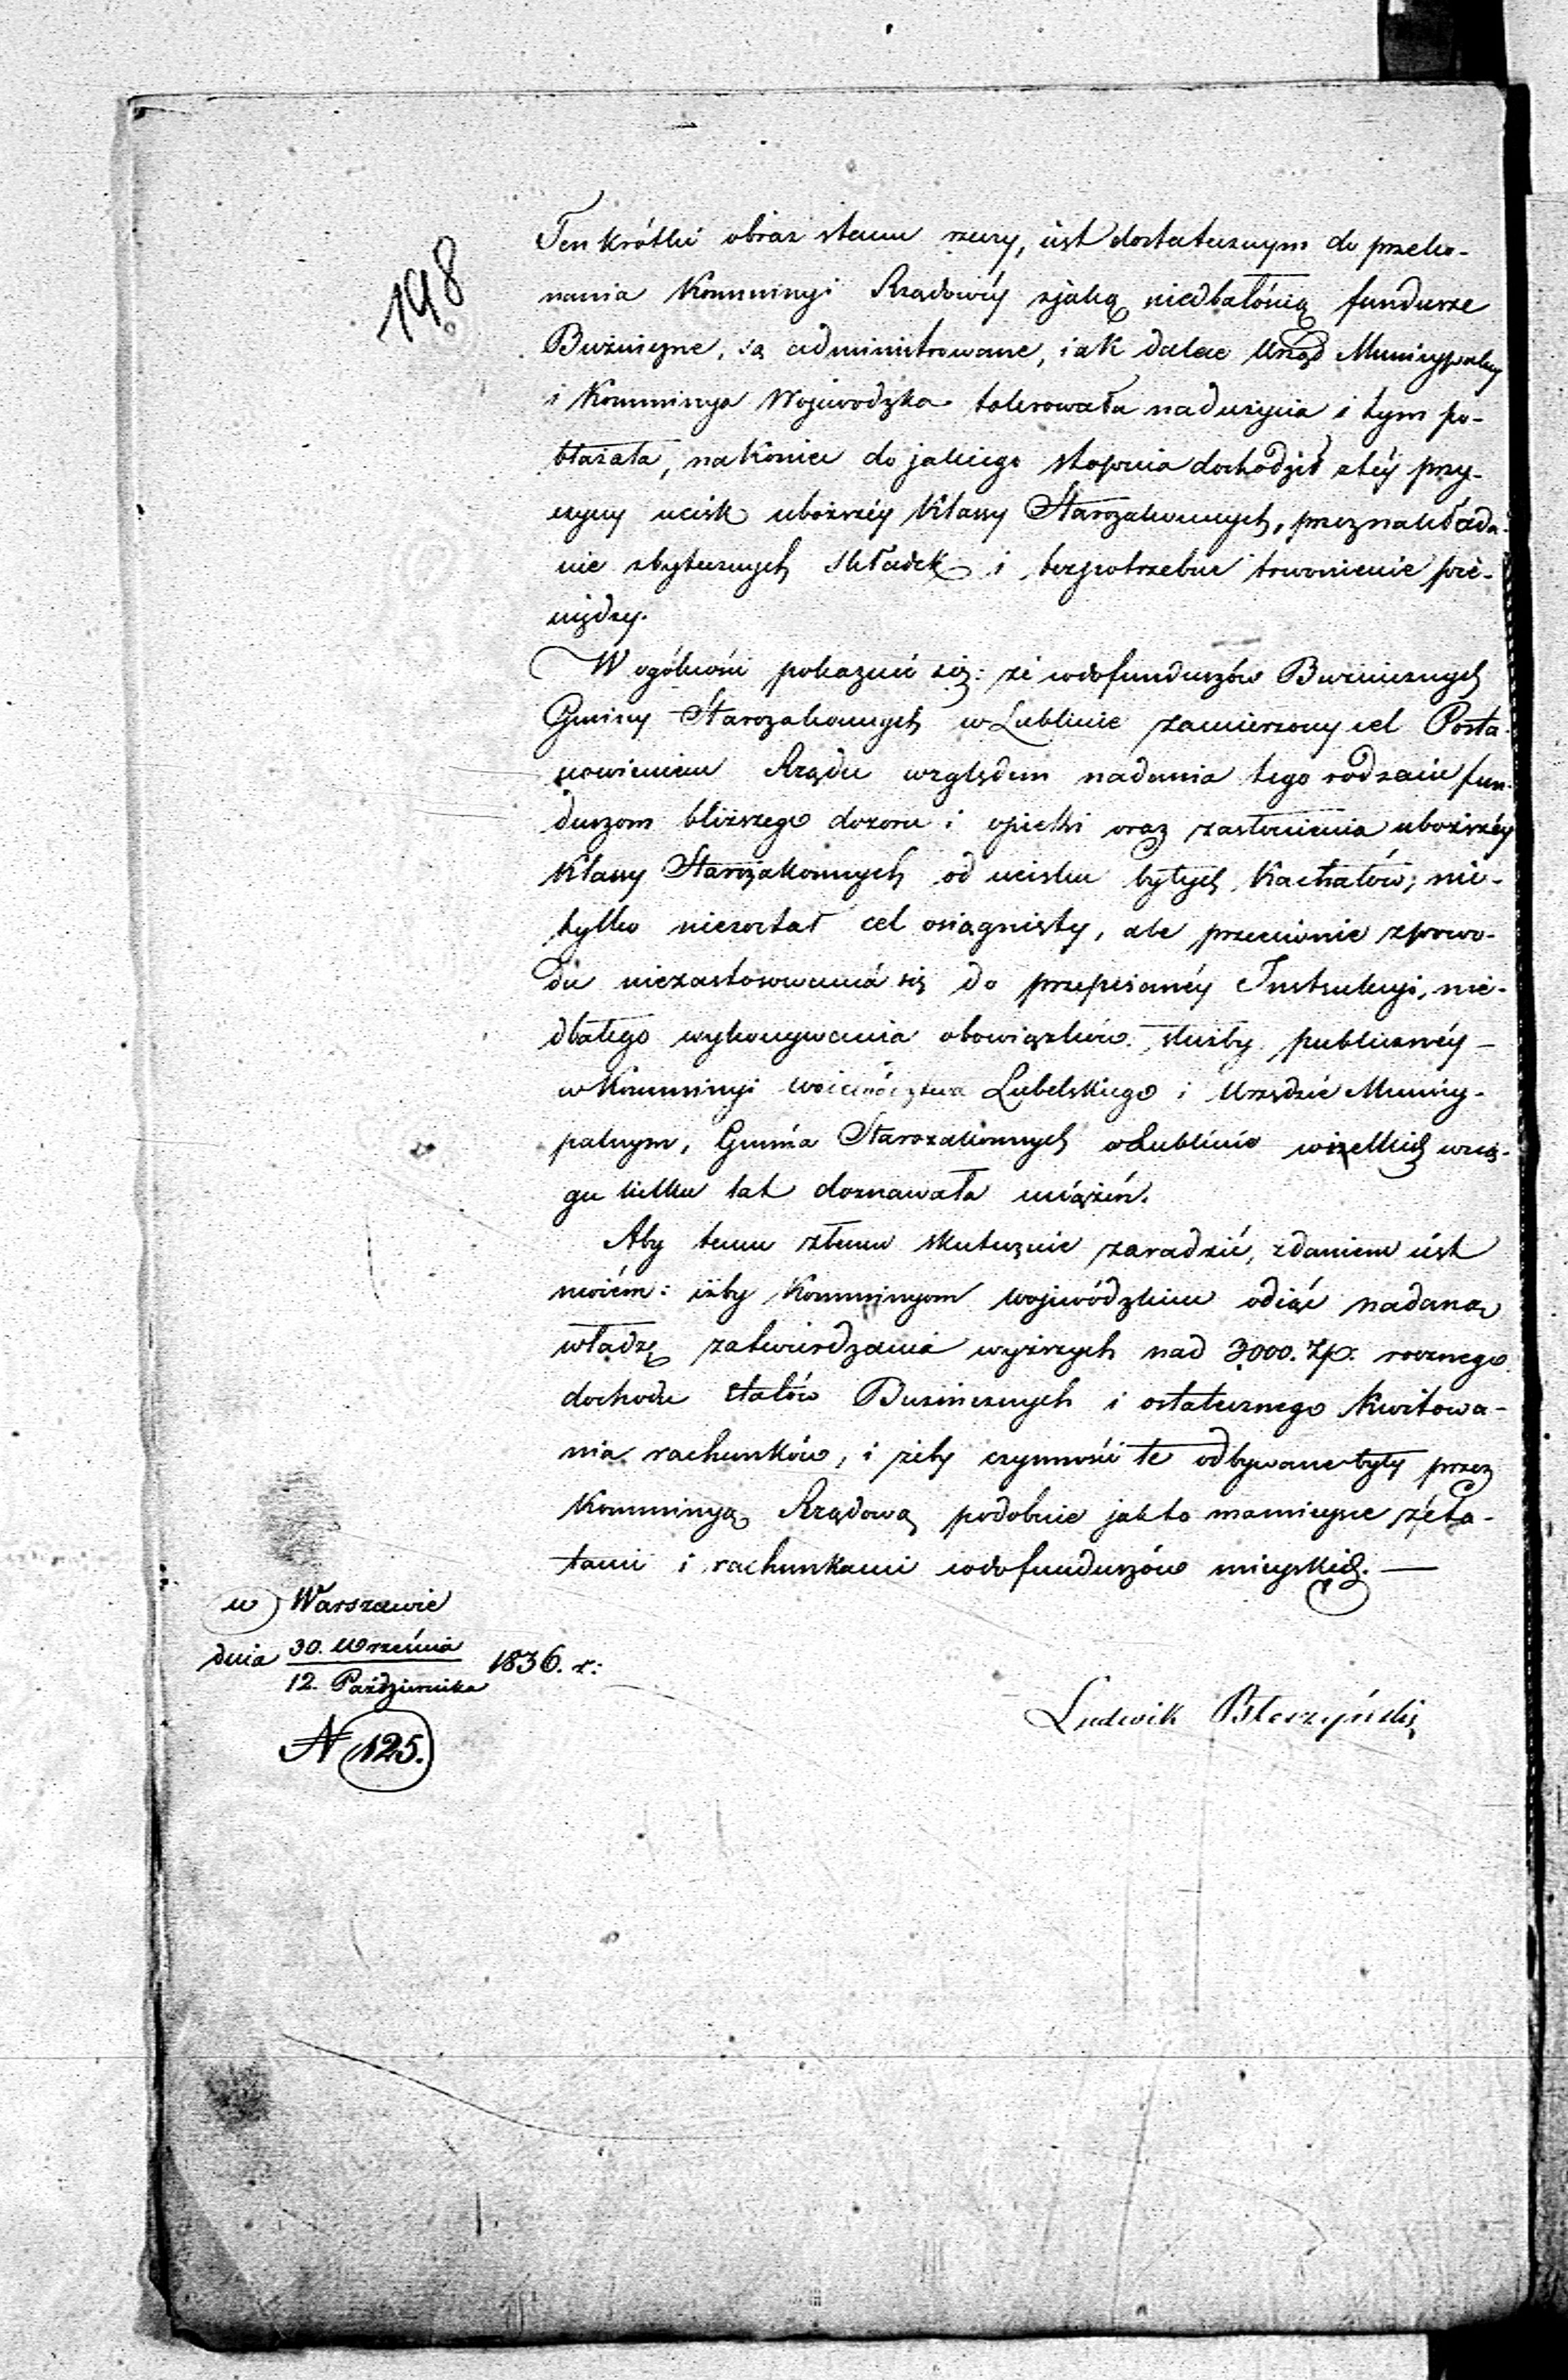 198
Ten krótki obraz stanu rzeczy, iest dostatecznym do przeko-
nania Kommissyi Rządowéy zjaką niedbałością fundusze
Bużniczne, są administrowane, iak dalece Urząd Municypalny
i Kommissya Wojewodzka tolerowała nadużycia i tym po-
błażała, nakoniec do jakiego stopnia dochodził ztéy przy-
czyny ucisk uboższéy klassy Starozakonnych, przez nakłada-
nie zbytecznych składek i bezpotrzebne trwonienie pie-
niędzy.
W ogólności pokazuie się: że co do funduszów Bużnicznych
Gminy Starozakonnych w Lublinie zamierzony cel Posta-
nowieniem Rządu względem nadania tego rodzaiu fun-
duszom bliższego dozoru i opieki oraz zasłonienia uboższéy
klassy Starozakonnych od ucisku byłych Kachałów; nie-
tylko niezostał cel osiągnięty, ale przeciwnie zpowo-
du niezastosowania się do przepisanéy Instrukcyi, nie-
dbałego wykonywania obowiązków służby publicznéy
w Kommissyi Woiewództwa Lubelskiego i Urzędzie Municy-
palnym, Gmina Starozakonnych w Lublinie wszelkich wcią-
gu kilku lat doznawała uciążeń.
Aby temu złemu skutecznie zaradzić, zdaniem iest
moiém: iżby Kommissyom Wojewódzkim odiąć nadaną
władzę zatwierdzania wyższych nad 3000. Zp. rocznego
dochodu etatów Bużnicznych i ostatecznego kwitowa-
nia rachunków, i żeby czynności te odbywane były przez
Kommissyą Rządową podobnie jak to mamieysce zéta-
tami i rachunkami co do funduszów mieyskich. —
w Warszawie
dnia 30. Września
12. Października 1836. r:
N 125.
Ludwik